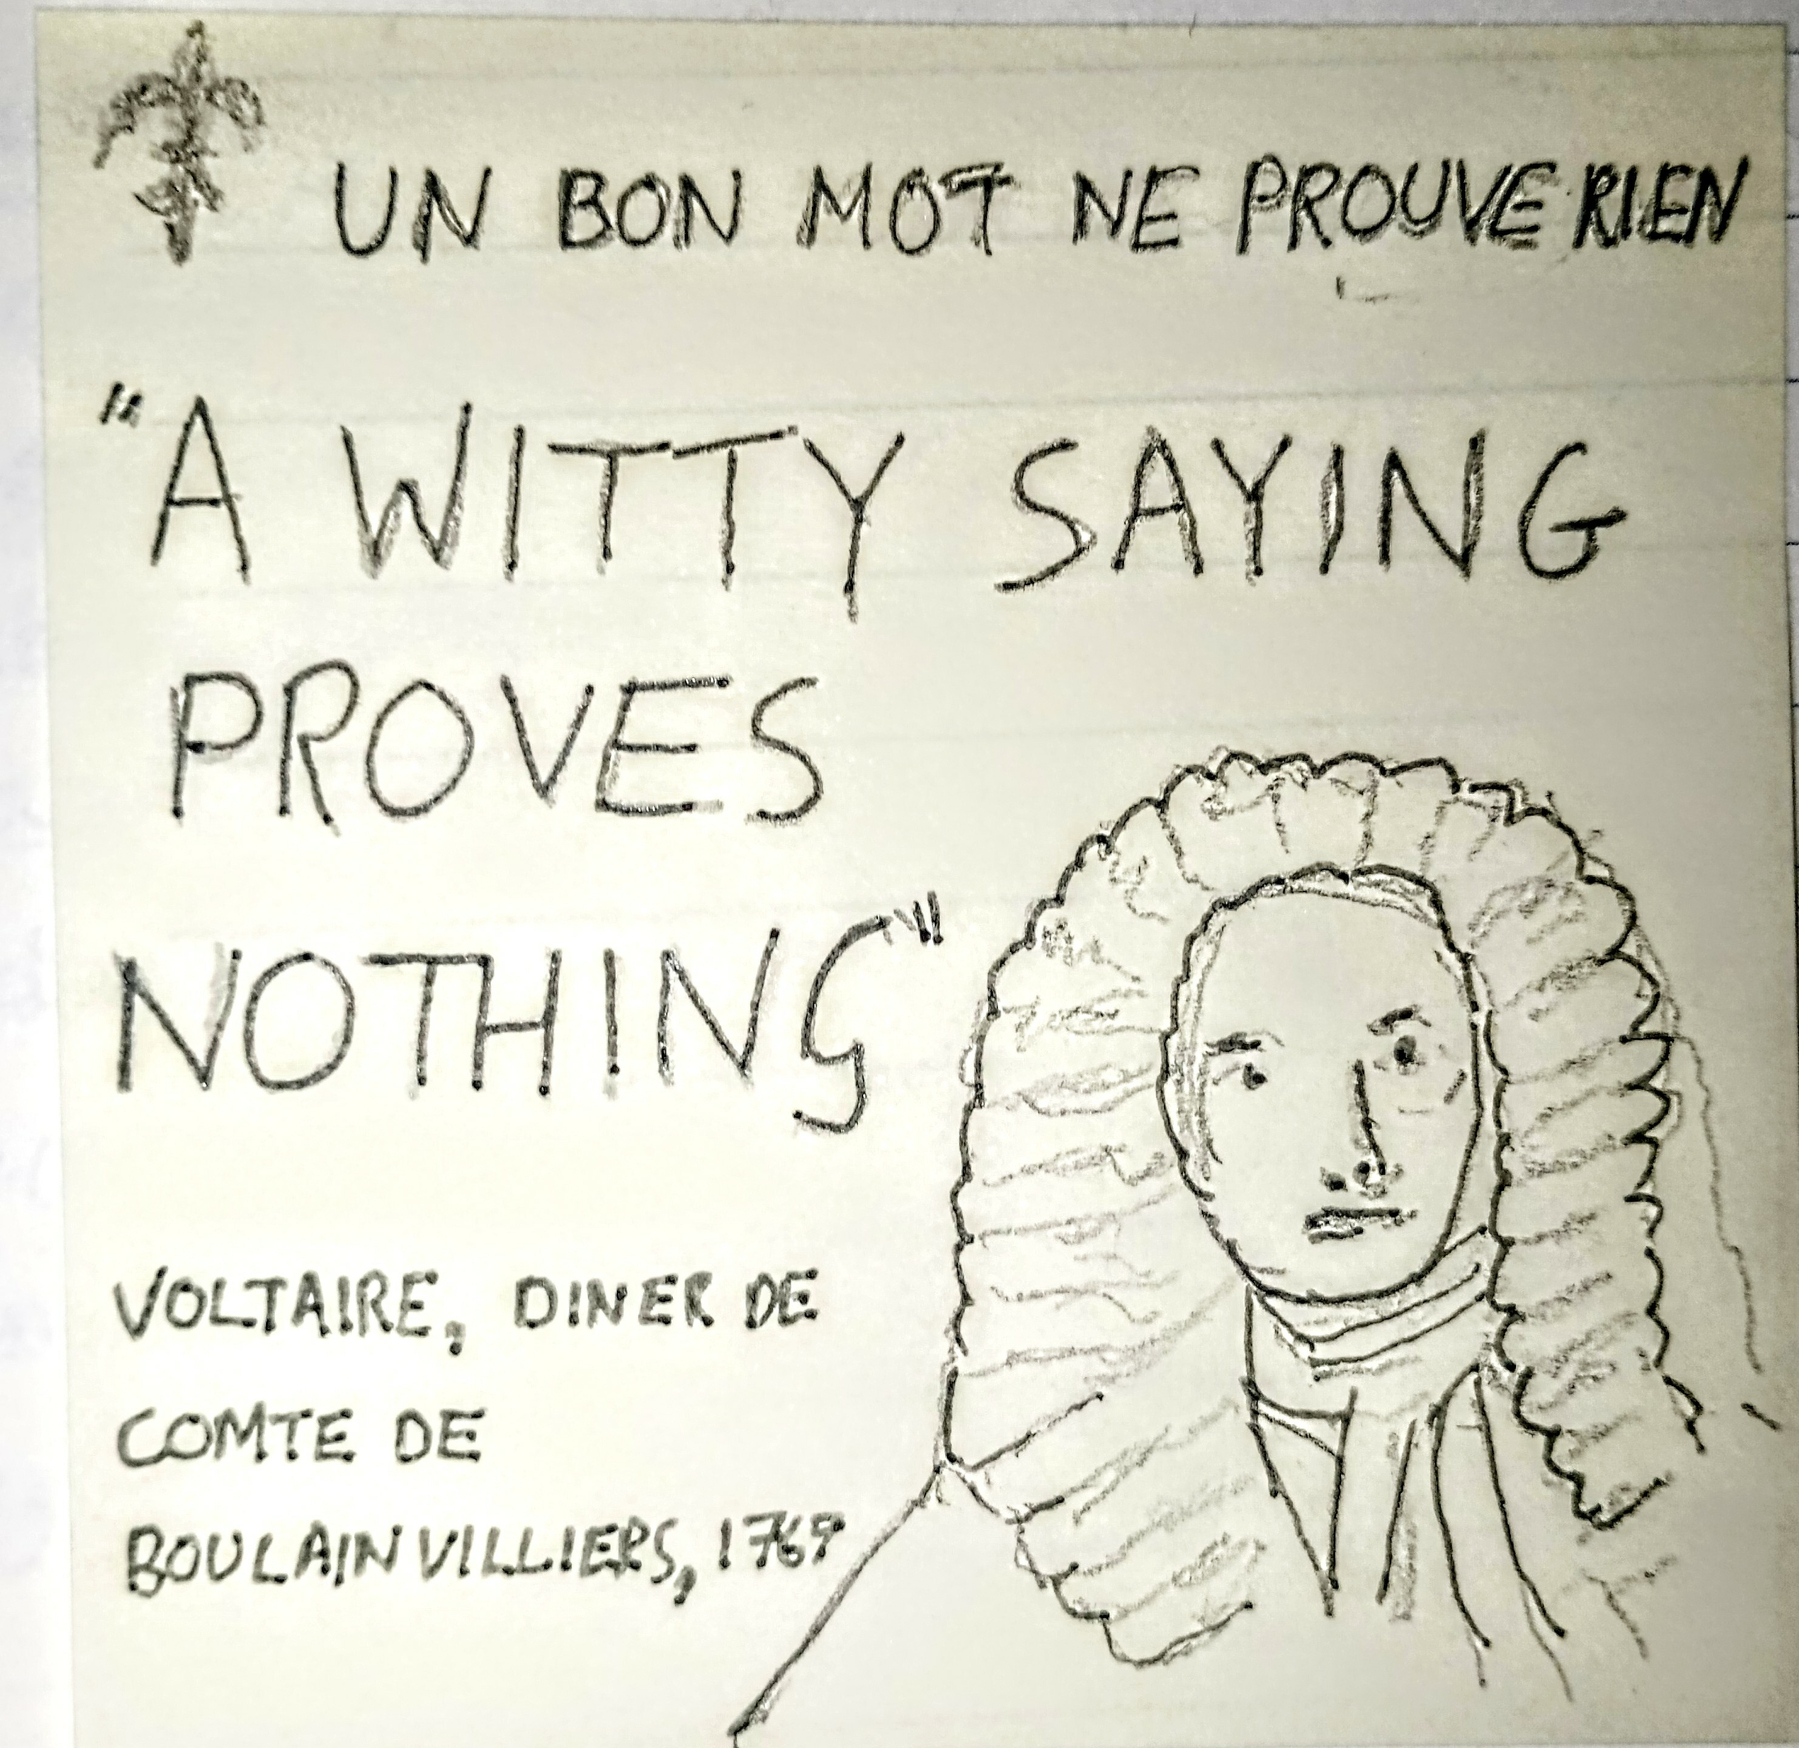 UN BON MOT NE PROUVE RIEN
"A WITTY SAYING
PROVES
NOTHING"
VOLTAIRE, DINER DE
COMTE DE
BOULAINVILLIERS, 1769